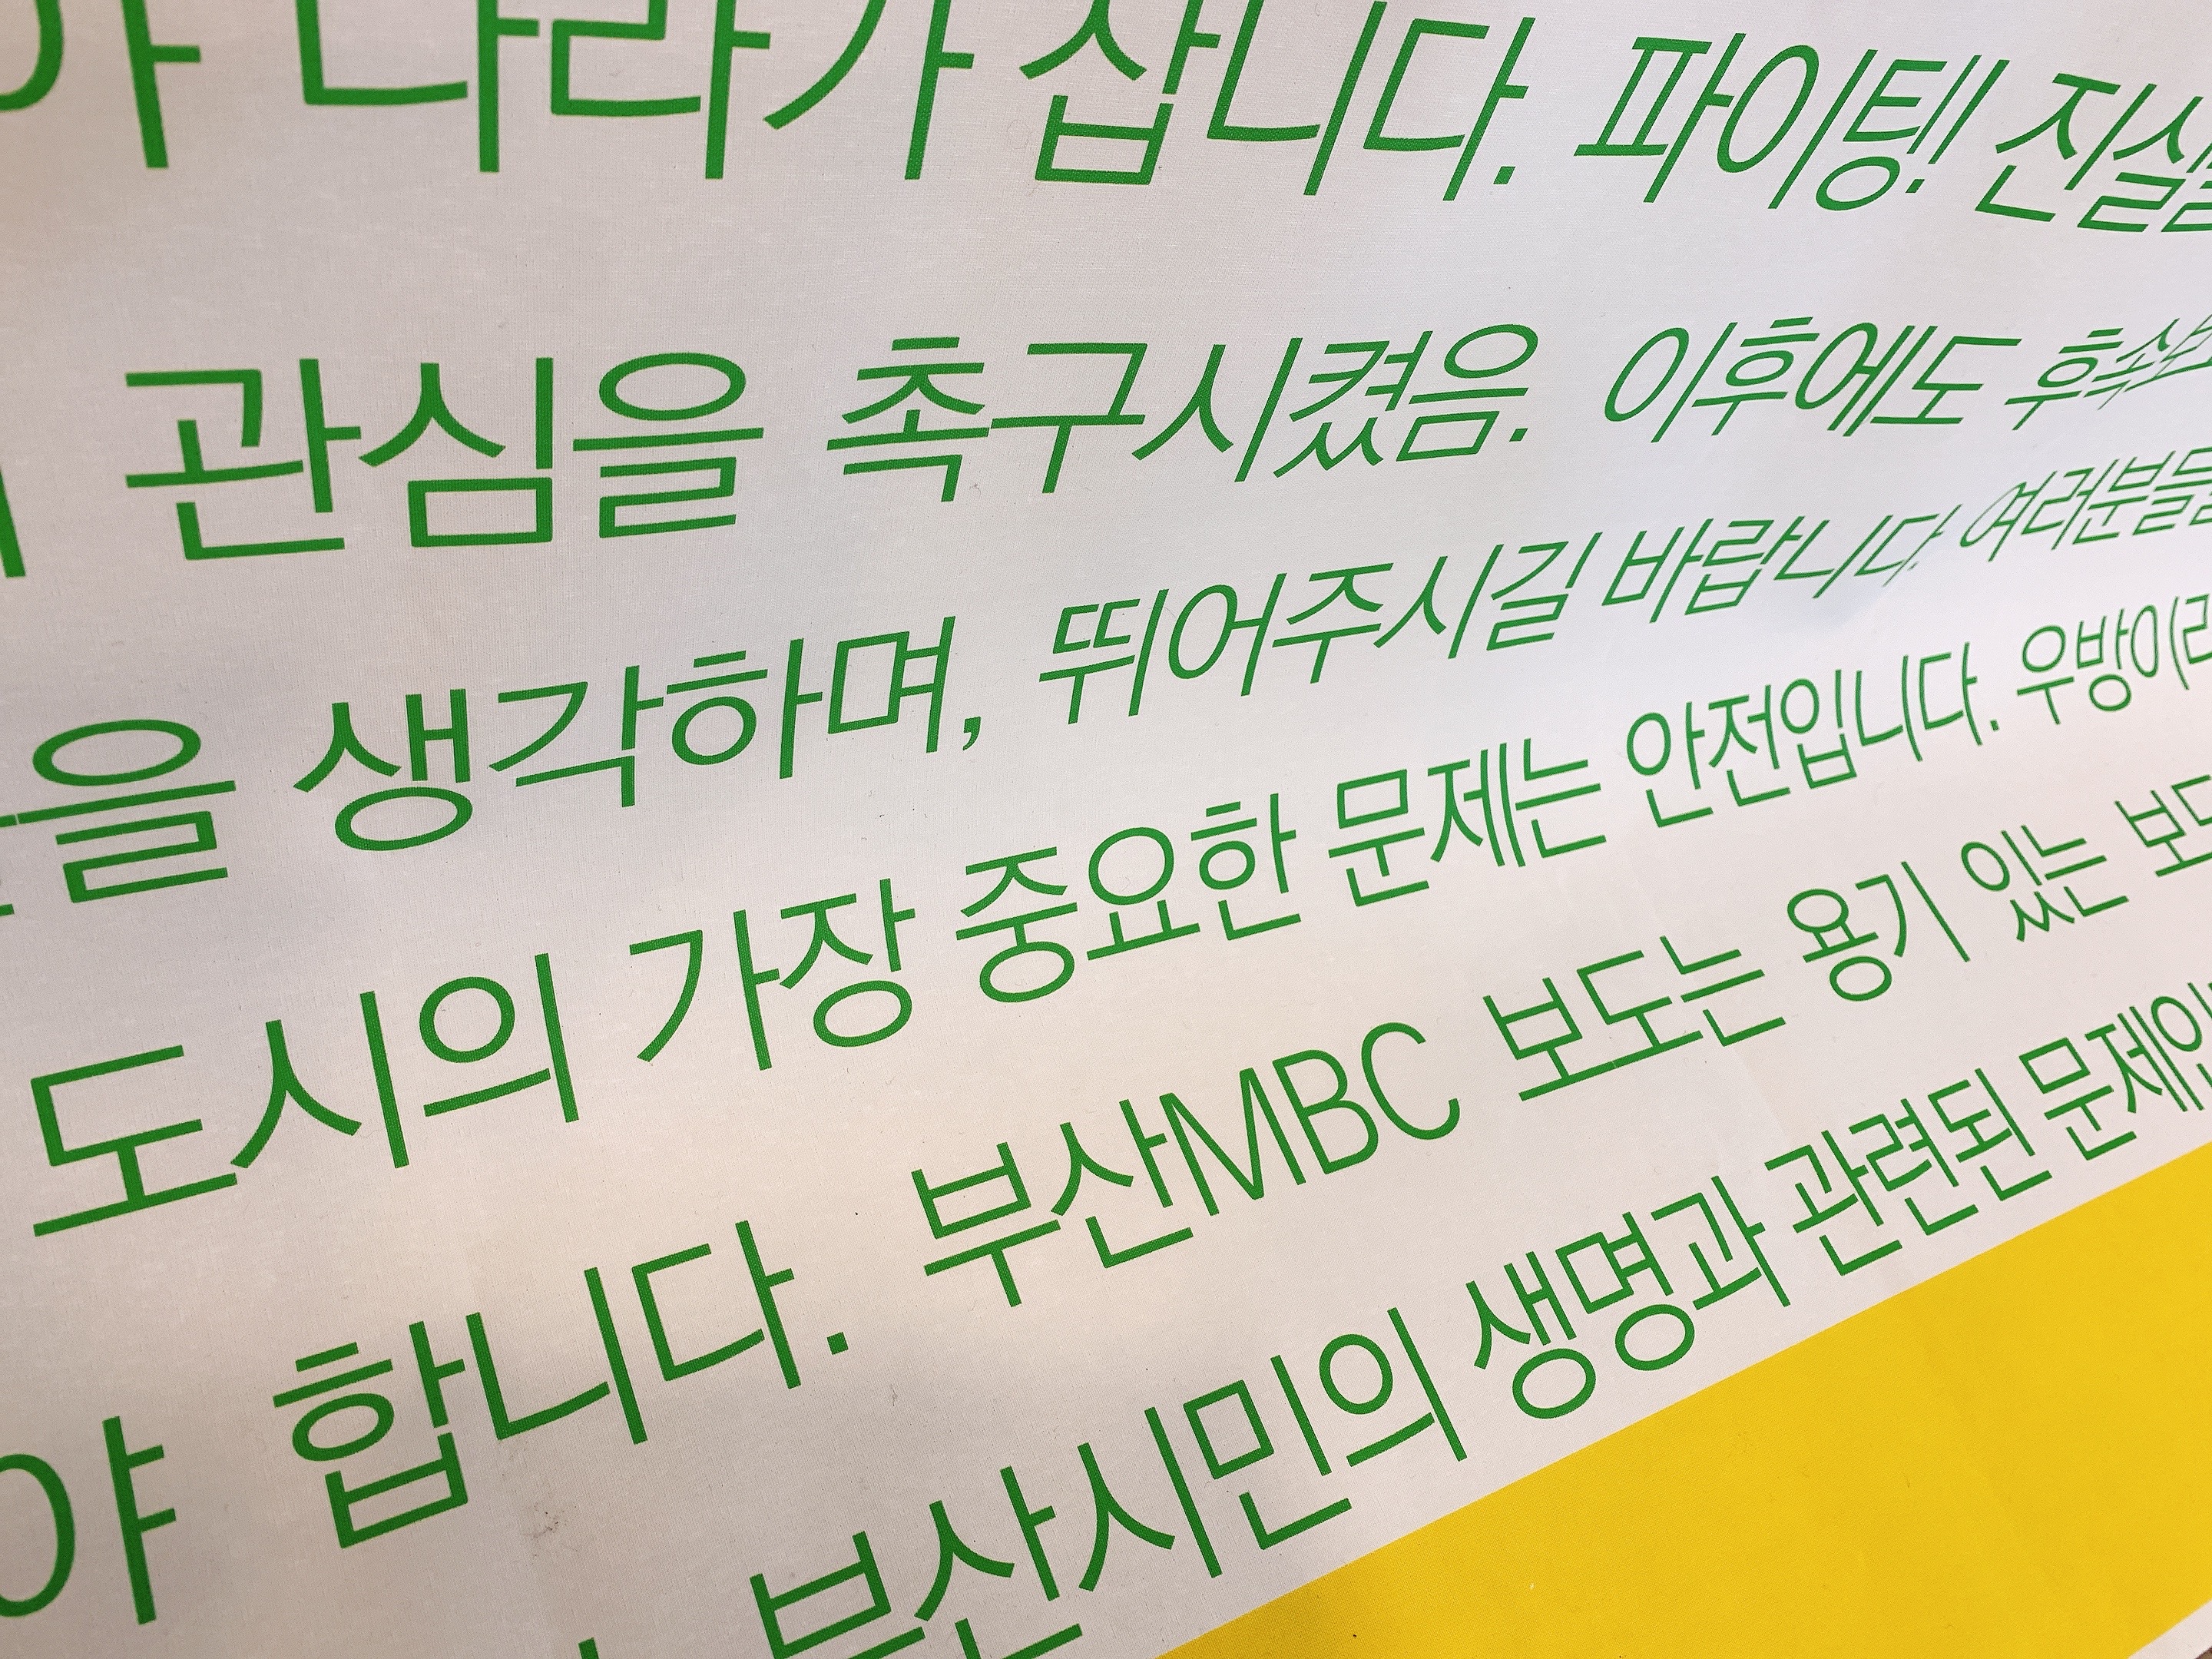 나라가 삽니다. 파이팅! 진실
관심을 촉구시켰음. 이후에도 후속보
을 생각하며, 뛰어주시길 바랍니다. 여러분들
도시의 가장 중요한 문제는 안전입니다. 우방이라
야 합니다. 부산MBC 보도는 용기 있는 보도
부산시민의 생명과 관련된 문제인